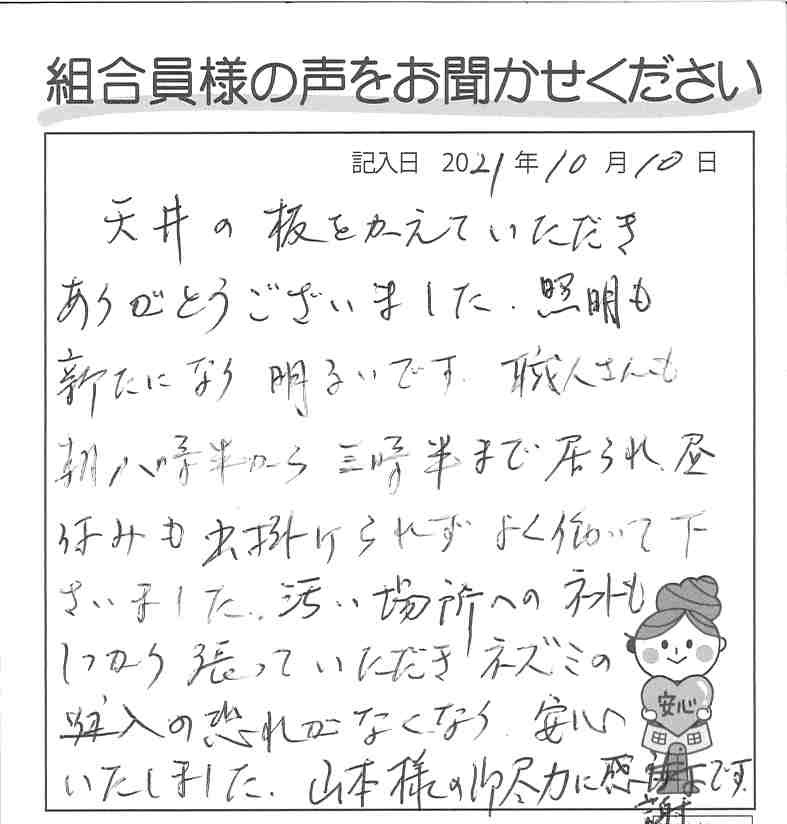 組合員様の声をお聞かせください
記入日 2021年10月10日
天井の板をかえていただき
ありがとうございました. 照明も
新たになり 明るいです. 職人さんも
朝八時半から 三時半まで 居られ、昼
休みも 出掛けられず よく働いて下
さいました. 汚い場所へのネットも
しっかり張っていただき ネズミの
入の恐れがなくなり 安心
いたしました. 山本様の御尽力に感謝です.
安心